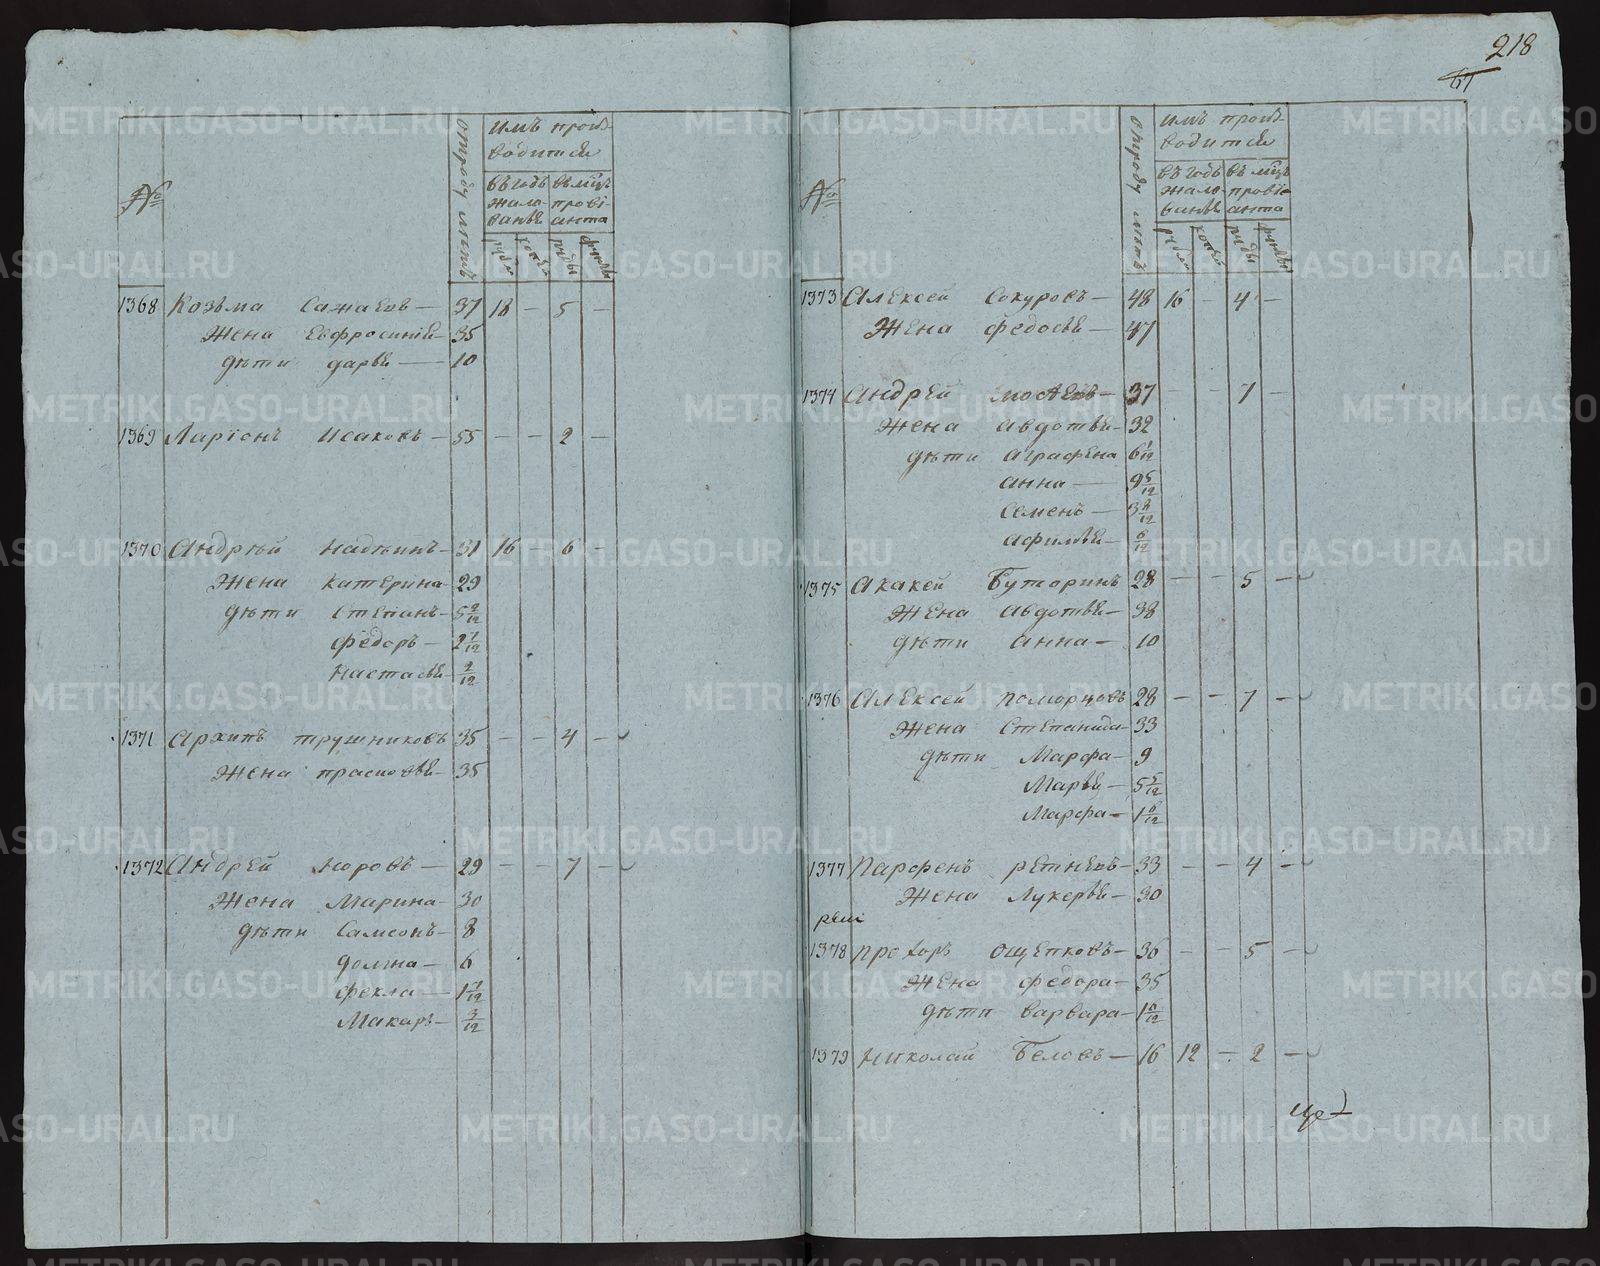 218
67
№
отроду летъ
имъ произ-
водится
въ годъ жало-ванья
въ мѣцъ прові-анта
рубли
копей
пуды
фунты
1368 Козьма Сажаевъ — 37 18 — 5 —
Жена Евфросинія — 35
дѣти дарья — 10
1369 Ларіонъ Исаковъ — 55 — — 2 —
1370 Андрѣй — 31 16 — 6 —
Жена катерина 29
дѣти Степанъ — 5 2/12
федоръ — 2 1/12
настасья 2/12
1371 Архипъ трушниковъ 35 — — 4 —
Жена прасковья — 35
1372 Андрей норовъ — 29 — — 7 —
Жена Марина — 30
дѣти Самсонъ — 8
домна — 6
фекла — 1 1/12
Макаръ — 3/12
№
отроду летъ
имъ произ-
водится
въ годъ жало-ванья
въ мѣцъ провіе-анта
рубли
копей
пуды
фунты
1373 Алексей Сокуровъ — 48 16 — 4 —
Жена федосья — 47
1374 Андрей — 37 — — 7 —
Жена авдотья — 32
дѣти аграфена 6 1/12
анна — 9 5/12
Семенъ — 3 2/12
афимья — 6/12
1375 Акакей Буторинъ 28 — — 5 —
Жена авдотья — 38
дѣти анна — 10
1376 Алексей поморцовъ 28 — — 7 —
Жена Степанида — 33
дѣти Марфа — 9
Марья — 5 5/12
Марфа — 1 6/12
1377 Парфенъ ретневъ — 33 — — 4 —
Жена Лукерья — 30
1378 прохоръ ощепковъ — 36 — — 5 —
Жена федора — 35
дѣти варвара — 1 10/12
1379 николай Беловъ — 16 12 — 2 —
METRIKI.GASO-URAL.RU